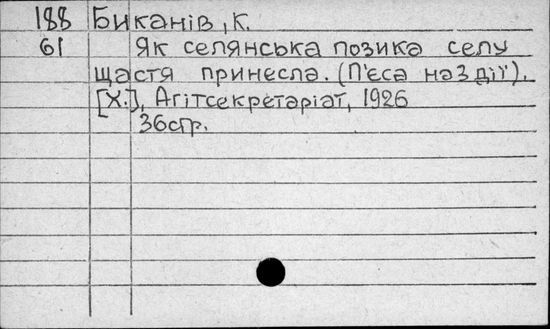 188 Биканів, К.
61 Як селянська позика селу
щастя принесла. (П'єса на 3 дії).
[Х.], Агітсекретаріат, 1926
36стр.